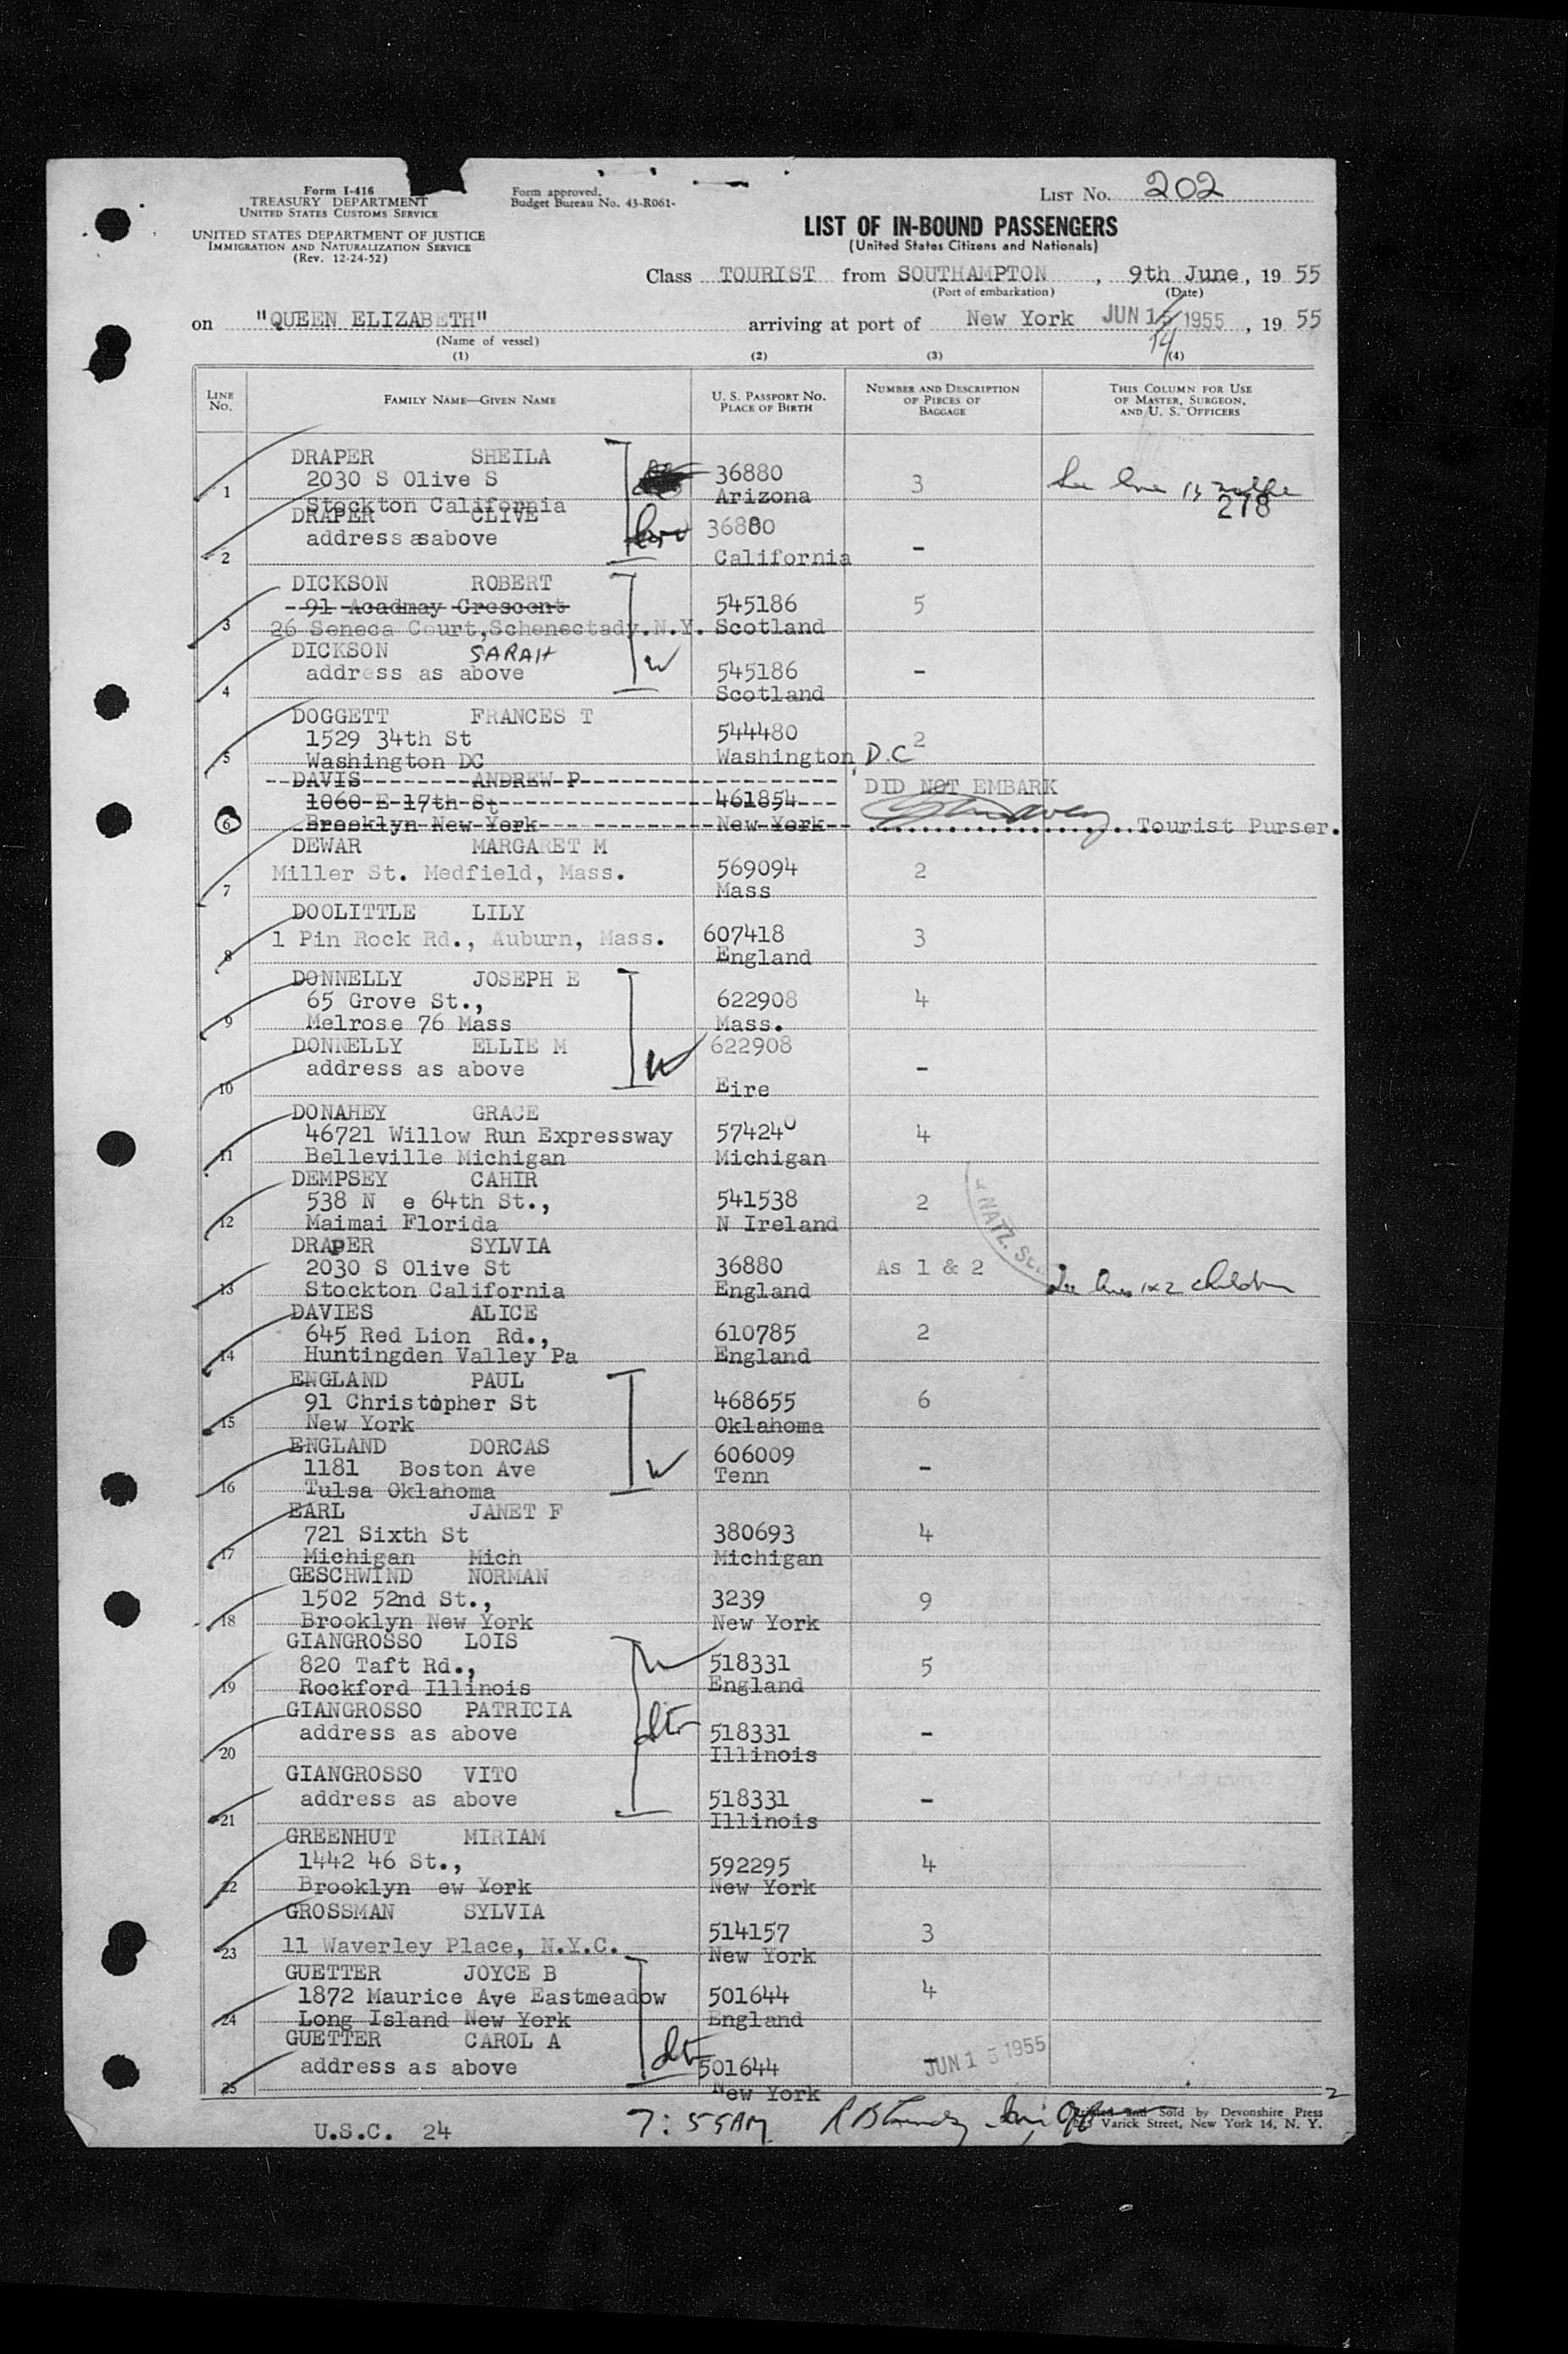 Form I-416
TREASURY DEPARTMENT
UNITED STATES CUSTOMS SERVICE
UNITED STATES DEPARTMENT OF JUSTICE
IMMIGRATION AND NATURALIZATION SERVICE
(Rev. 12-24-52)
Form approved.
Budget Bureau No. 43-R061-
LIST NO. 202
LIST OF IN-BOUND PASSENGERS
(United States Citizens and Nationals)
Class TOURIST from SOUTHAMPTON , 9th June, 19 55
(Port of embarkation) (Date)
on "QUEEN ELIZABETH" arriving at port of New York JUN 15 1955 , 19 55
14
(Name of vessel)
(1) (2) (3) (4)
LINE NO. FAMILY NAME—GIVEN NAME U. S. PASSPORT NO. PLACE OF BIRTH NUMBER AND DESCRIPTION OF PIECES OF BAGGAGE THIS COLUMN FOR USE OF MASTER, SURGEON, AND U. S. OFFICERS
DRAPER SHEILA
2030 S Olive S 36880
1 Stockton California Arizona 3 See line 13
278
DRAPER CLIVE 36880
address asabove
2 California -
DICKSON ROBERT
91 Acadmay Crescent 545186 5
3 26 Seneca Court,Schenectady.N.Y. Scotland
DICKSON SARAH
address as above 545186 -
4 Scotland
DOGGETT FRANCES T
1529 34th St 544480 2
5 Washington DC Washington D.C
DAVIS ANDREW P DID NOT EMBARK
1060 E 17th St 461854
6 Brooklyn New York New York Tourist Purser.
DEWAR MARGARET M
Miller St. Medfield, Mass. 569094 2
7 Mass
DOOLITTLE LILY
1 Pin Rock Rd., Auburn, Mass. 607418 3
8 England
DONNELLY JOSEPH E
65 Grove St., 622908 4
9 Melrose 76 Mass Mass.
DONNELLY ELLIE M W 622908
address as above -
10 Eire
DONAHEY GRACE
46721 Willow Run Expressway 574240 4
11 Belleville Michigan Michigan
DEMPSEY CAHIR
538 N e 64th St., 541538 2
12 Maimai Florida N Ireland
& NATZ. SE
DRAPER SYLVIA
2030 S Olive St 36880 As 1 & 2
13 Stockton California England See lines 1x2 children
DAVIES ALICE
645 Red Lion Rd., 610785 2
14 Huntingden Valley Pa England
ENGLAND PAUL
91 Christopher St 468655 6
15 New York Oklahoma
ENGLAND DORCAS 606009
1181 Boston Ave W Tenn -
16 Tulsa Oklahoma
EARL JANET F
721 Sixth St 380693 4
17 Michigan Mich Michigan
GESCHWIND NORMAN
1502 52nd St., 3239 9
18 Brooklyn New York New York
GIANGROSSO LOIS
820 Taft Rd., W 518331 5
19 Rockford Illinois England
GIANGROSSO PATRICIA dtr
address as above 518331 -
20 Illinois
GIANGROSSO VITO
address as above 518331 -
21 Illinois
GREENHUT MIRIAM
1442 46 St., 592295 4
22 Brooklyn ew York New York
GROSSMAN SYLVIA
514157 3
23 11 Waverley Place, N.Y.C. New York
GUETTER JOYCE B
1872 Maurice Ave Eastmeadow 501644 4
24 Long Island New York England
GUETTER CAROL A
address as above dtr 501644 - JUN 15 1955
25 New York
U.S.C. 24 7:55AM
2
Printed and Sold by Devonshire Press
Varick Street, New York 14, N. Y.